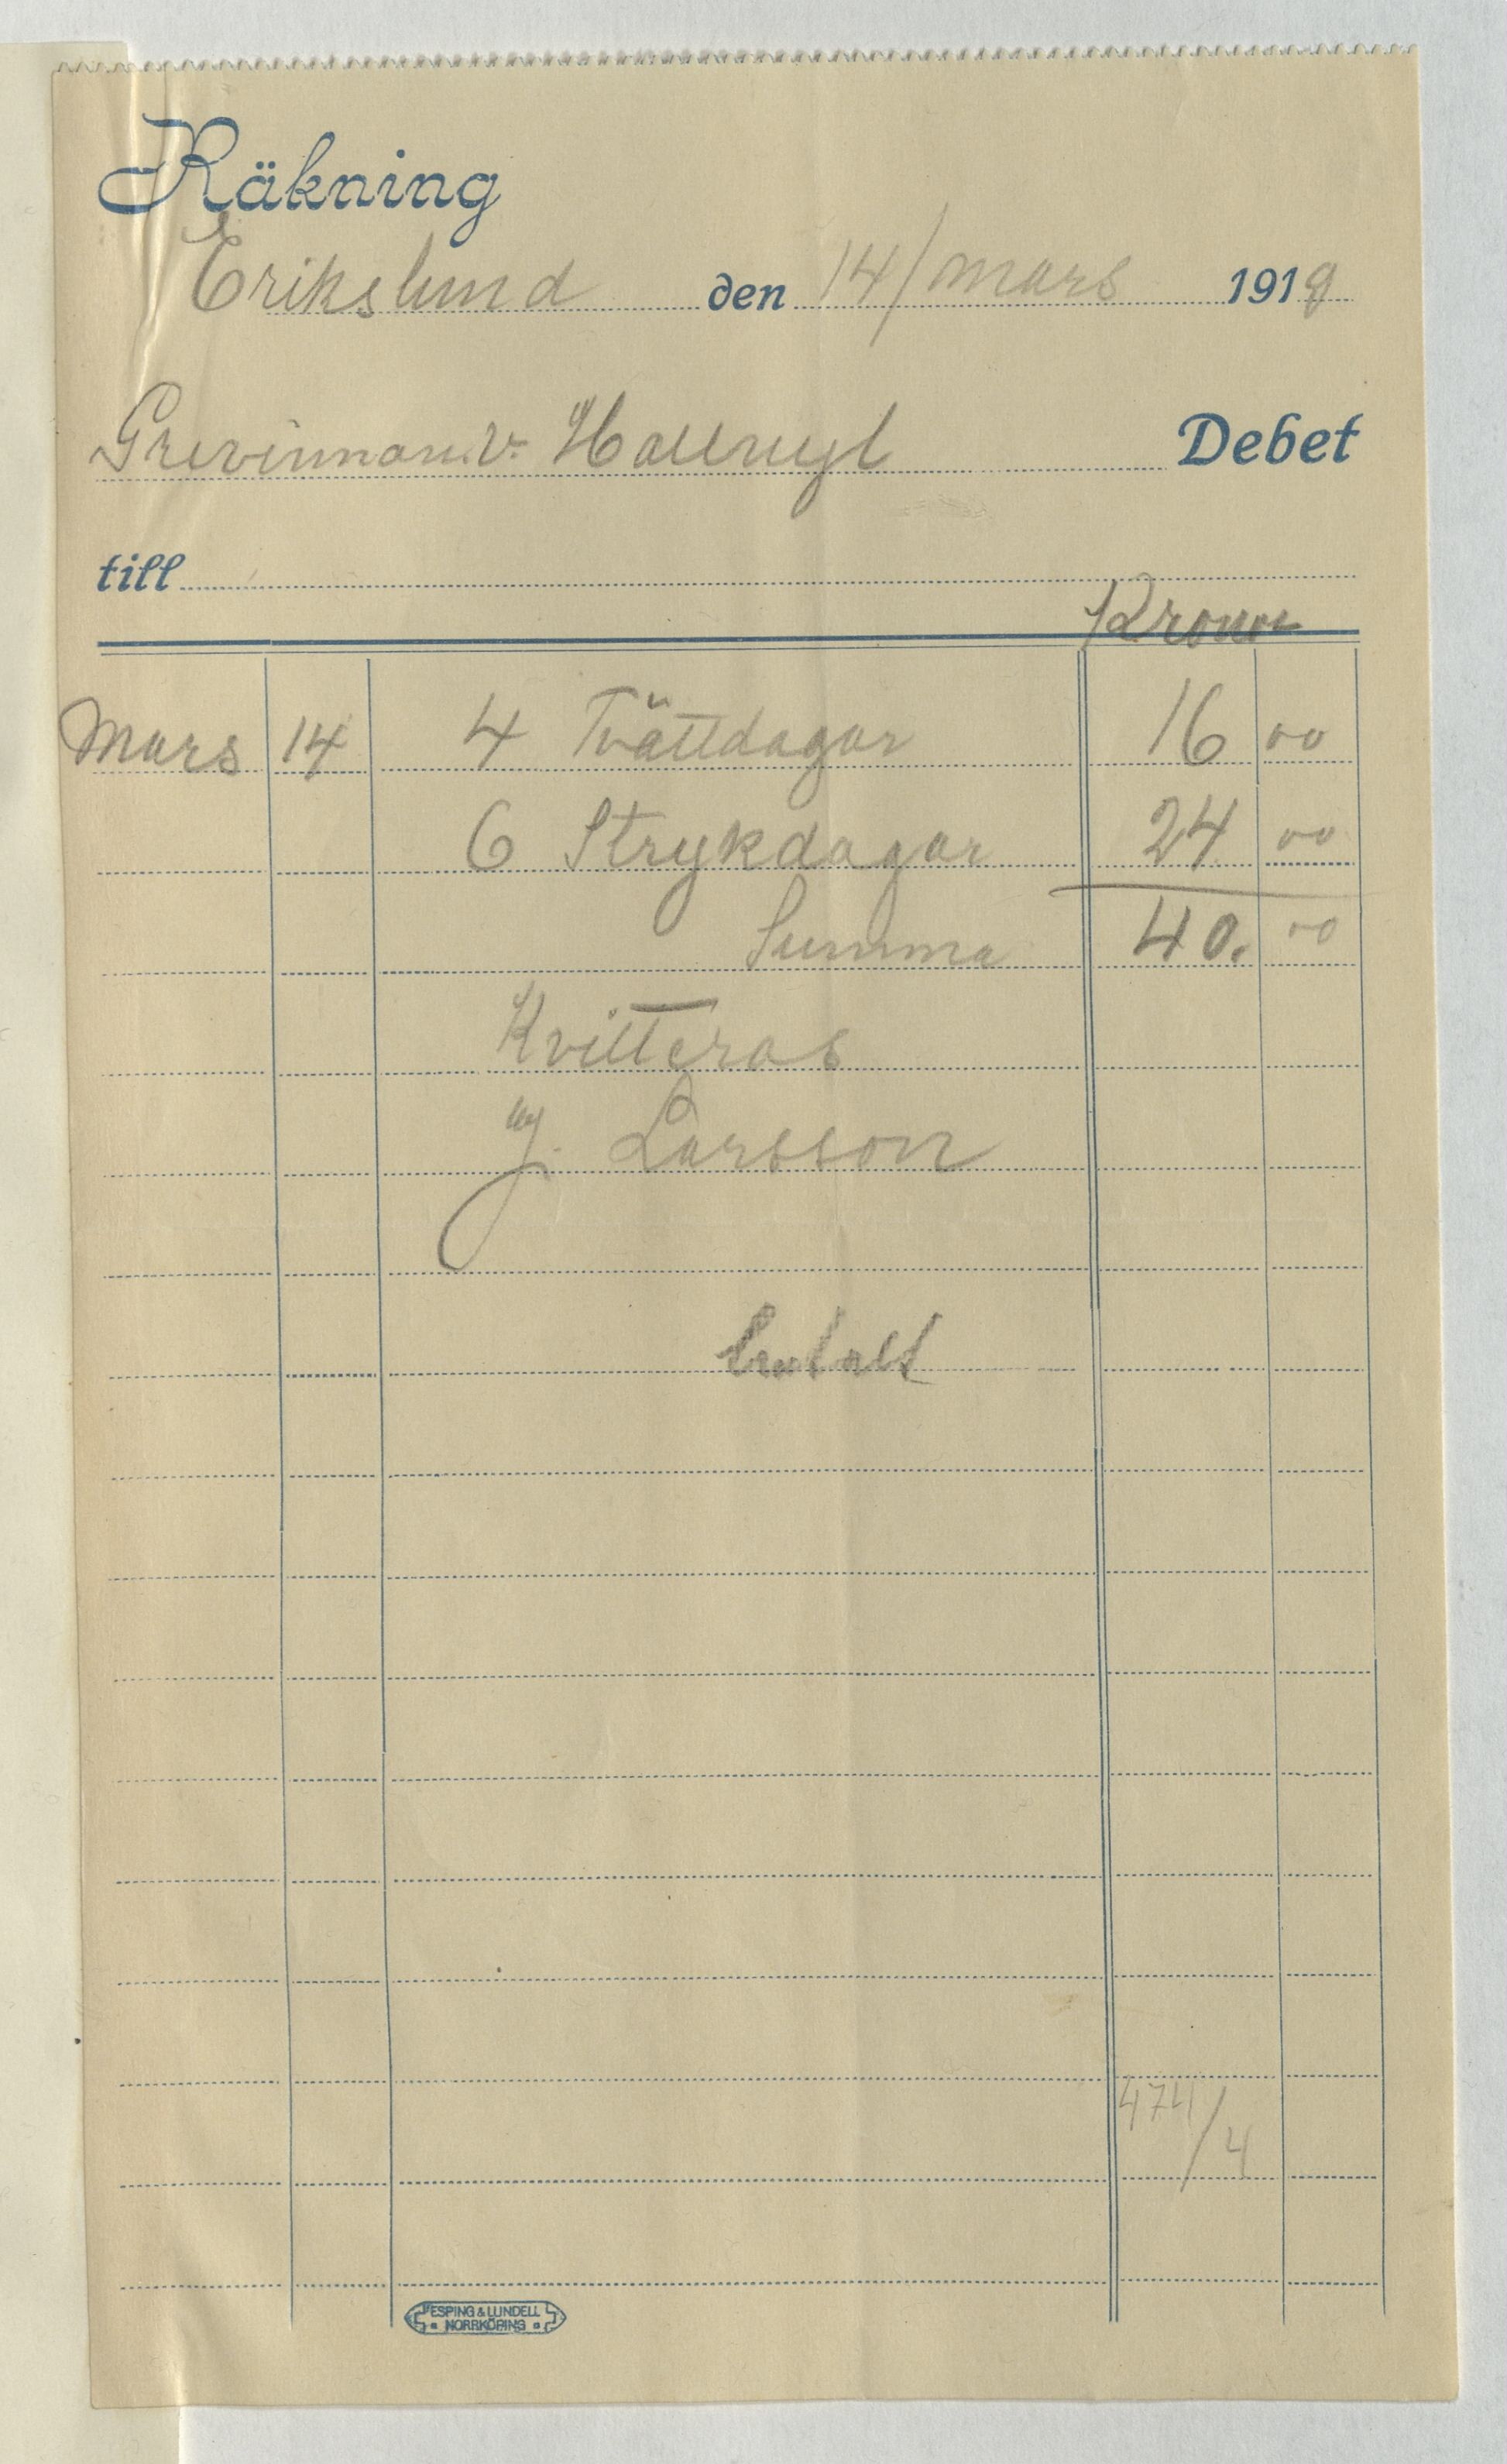 Räkning
Erikslund den 14/mars 1919
Grevinnan v. Hallwyl Debet
till
Kronor
Mars 14 4 Tvättdagar 16 00
6 Strykdagar 24 00
Summa 40. 00
Kvitteras
J. Larsson
474/4
ESPING & LUNDELL
NORRKÖPING